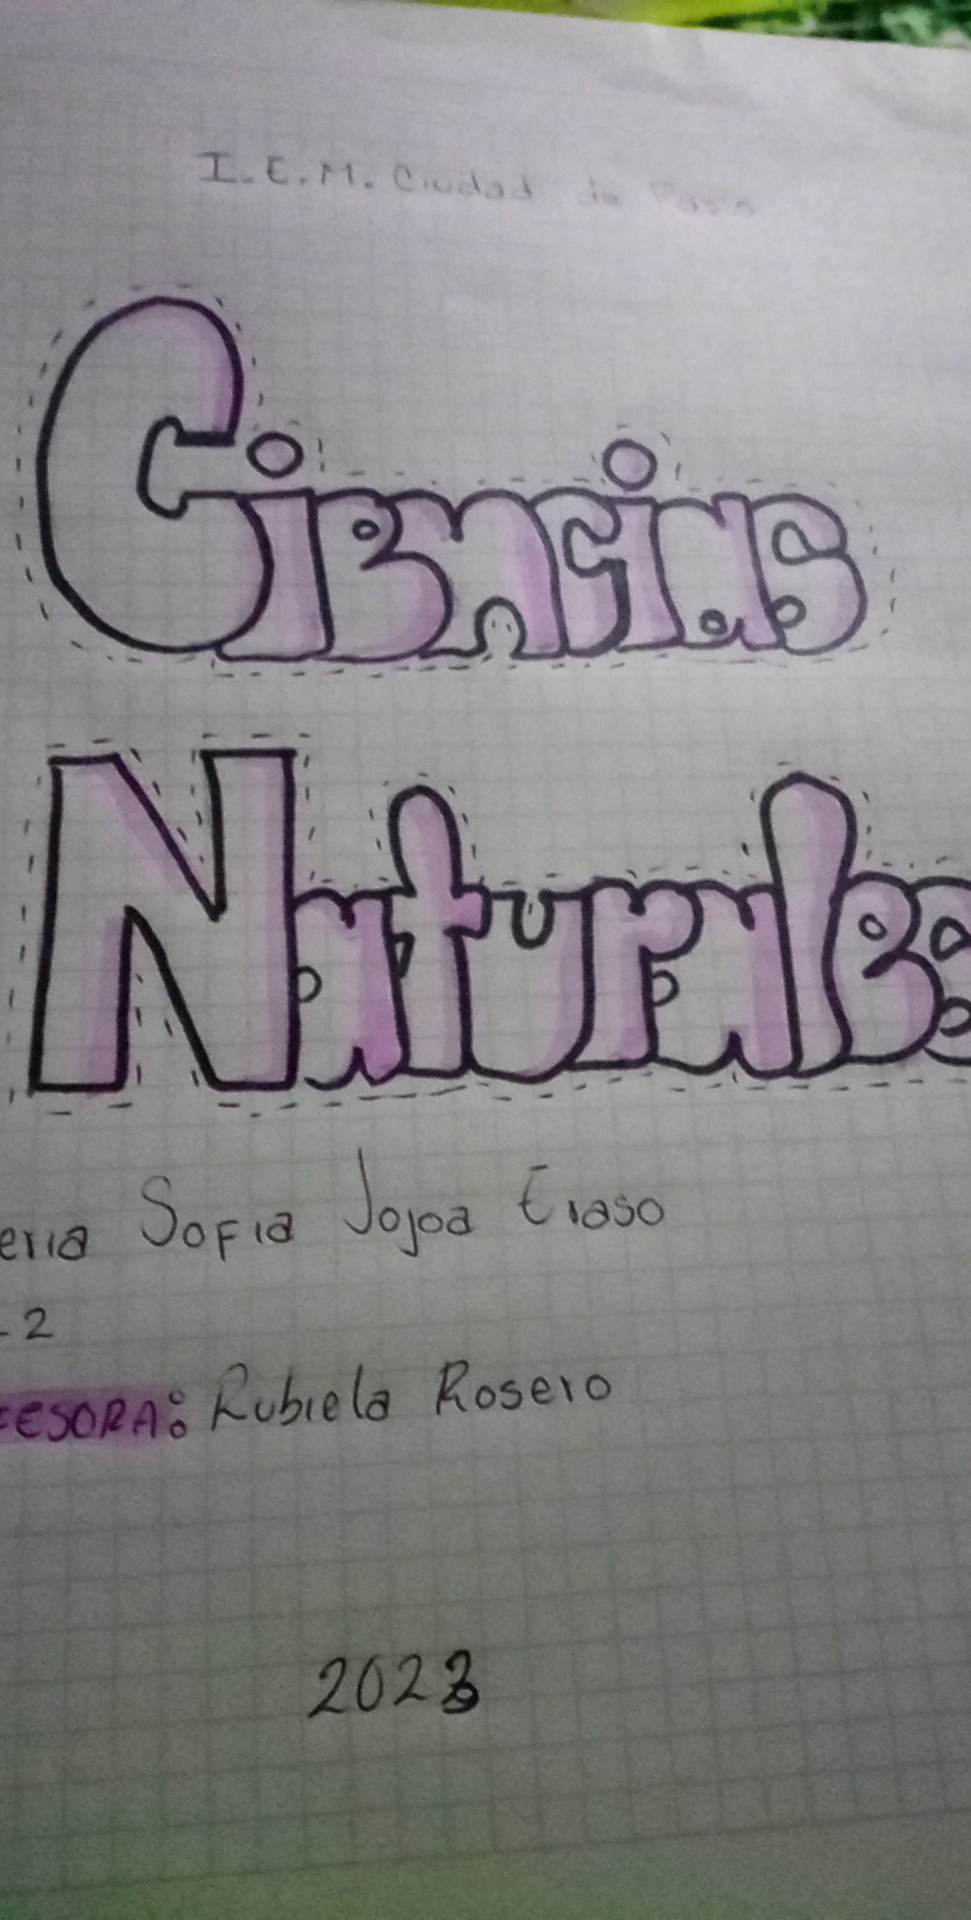 I.E.M. Ciudad de Pasto
Ciencias
Naturales
eria Sofia Jojoa Eraso
-2
ESORA: Rubiela Rosero
2023